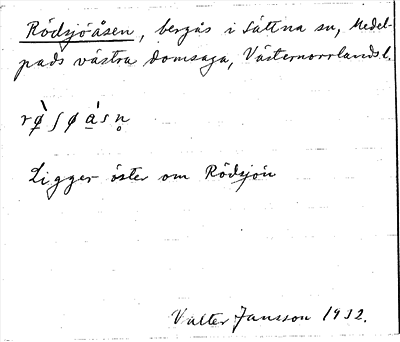 Rödsjöåsen, bergås i Sättna sn, Medel-
pads västra domsaga, Västernorrlands l.
rø̀ʃøásn̥
Ligger öster om Rödsjön
Valter Jansson 1932.